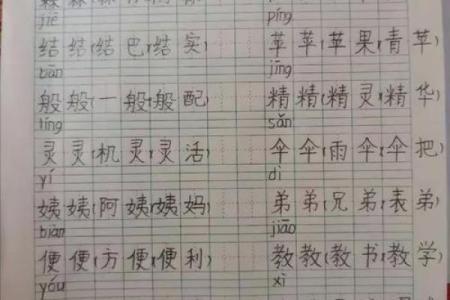 jiē píng
结结(结巴)(结实) 苹苹(苹果)(青苹
bān jīng
般般(一般)(般配) 精精(精灵)(精华
líng sǎn
灵灵(机灵)(灵活) 伞伞(雨伞)(伞把
yí dì
姨姨(阿姨)(姨妈) 弟弟(兄弟)(表弟
biàn jiāo
便便(方便)(便利) 教教(教书)(教学
yóu xì